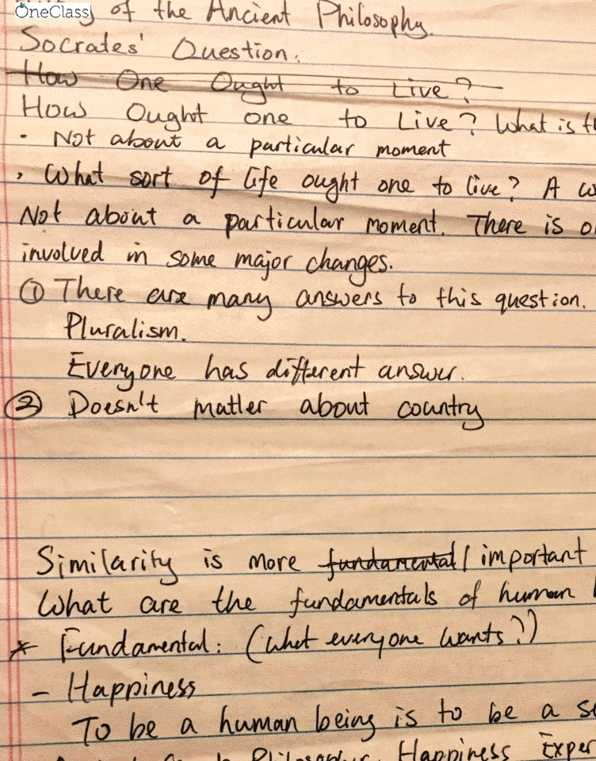 OneClass
of the Ancient Philosophy.
Socrates' Question:
How One Ought to Live?
How Ought one to Live? What is
· Not about a particular moment
, What sort of life ought one to live? A
Not about a particular moment. There is
involved in some major changes.
① There are many answers to this question.
Pluralism.
Everyone has different answer.
② Doesn't matter about country
Similarity is more fundamental / important
What are the fundamentals of human
* Fundamental: (what everyone wants?)
- Happiness
To be a human being is to be a
Happiness